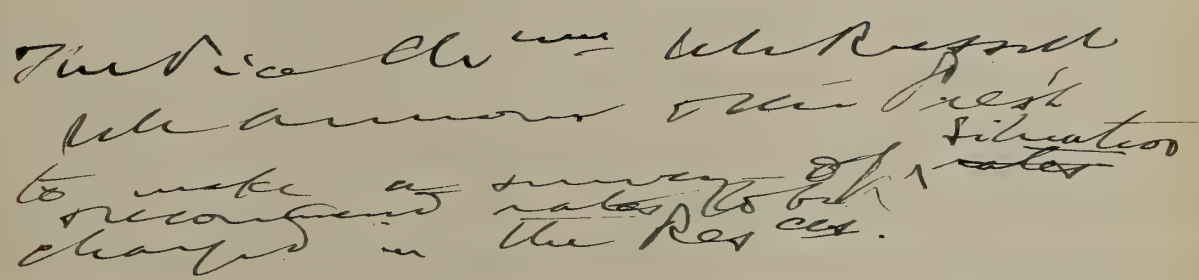 First Vice Chrmn Mr Russell
Mr Armour & the Prest
to make a survey of ^ situation ~~rates~~
& recommend rates to be
charged in the Res ces.